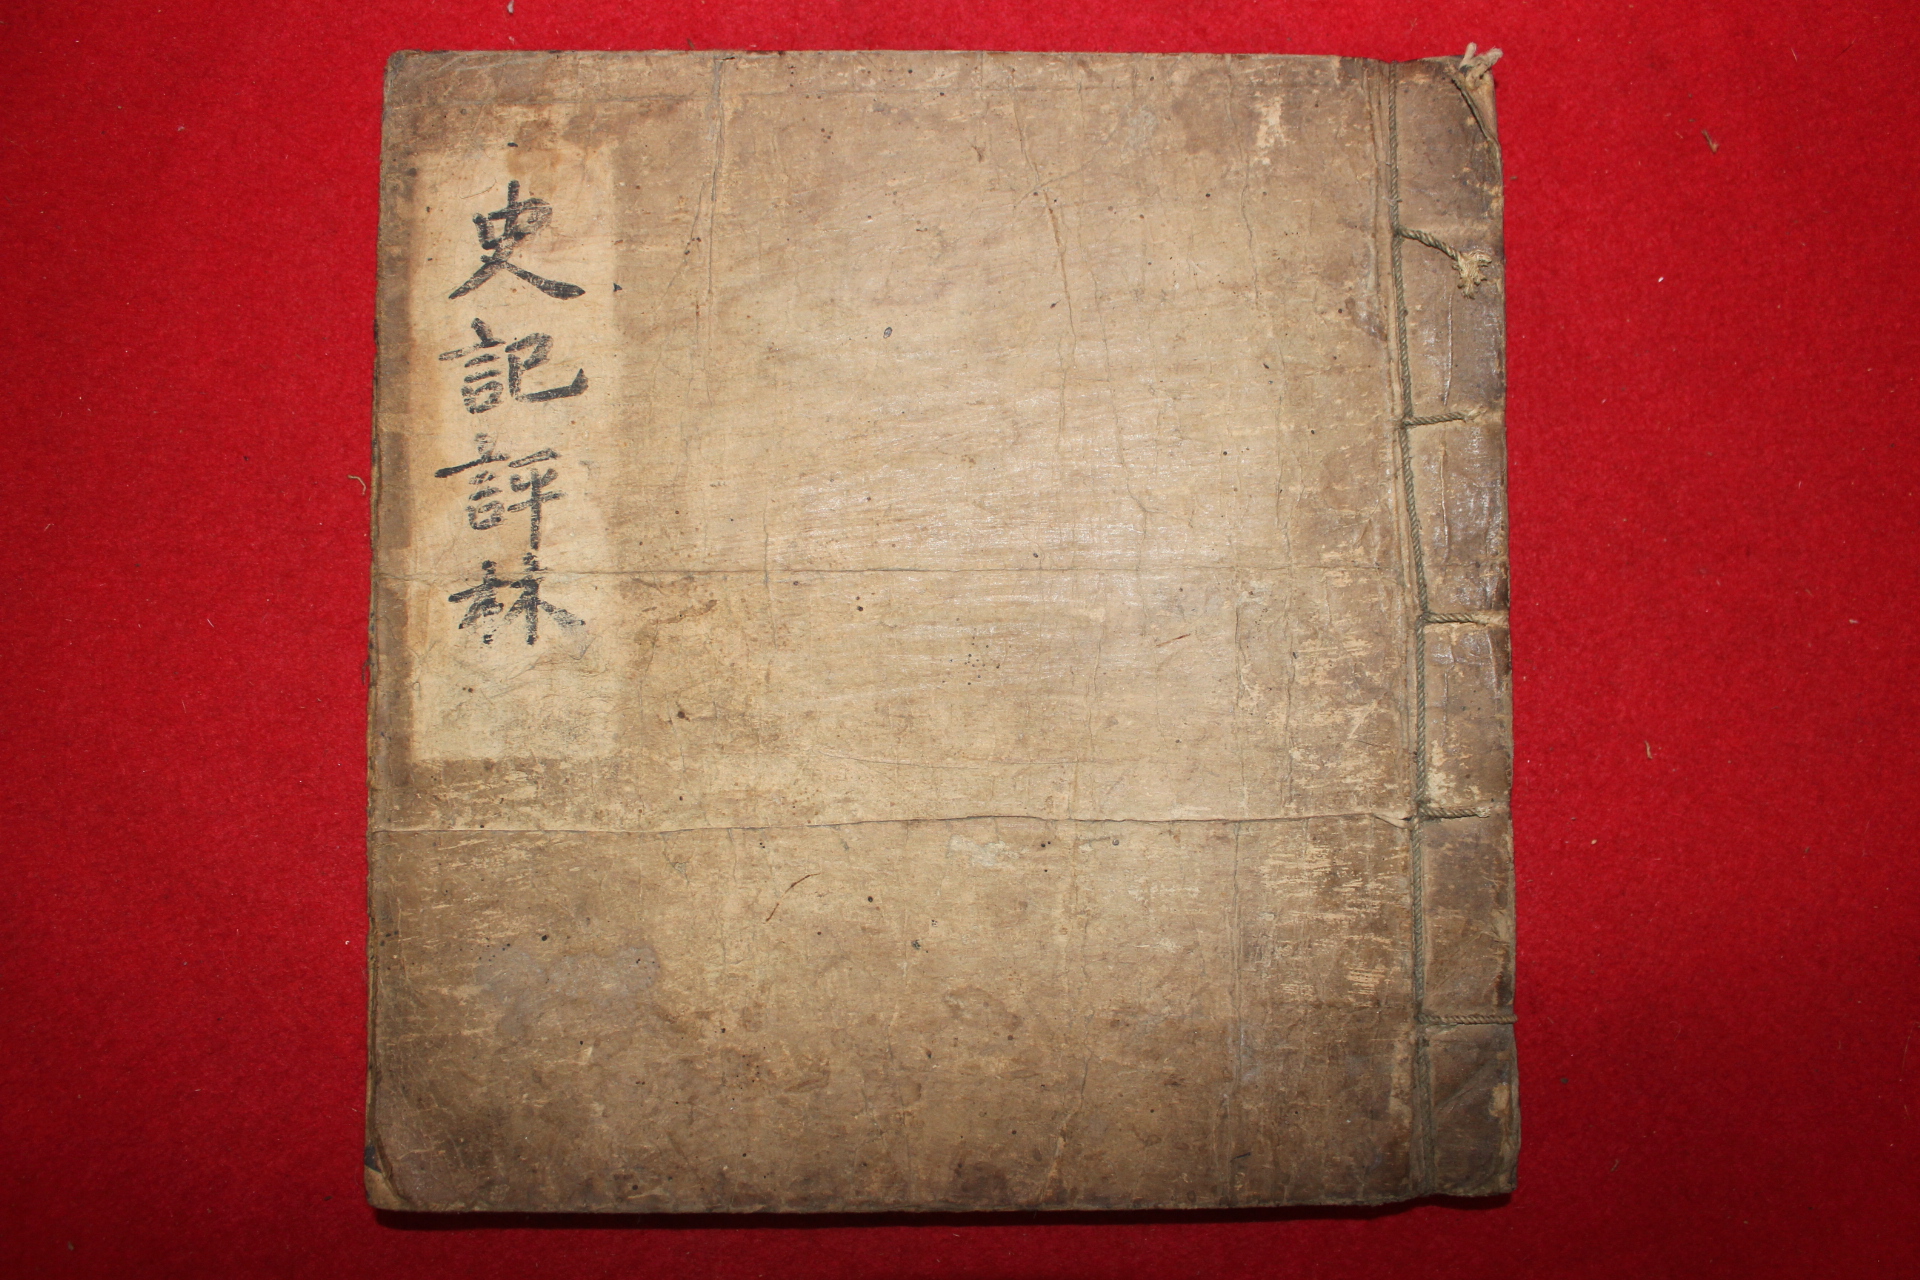 史記評林